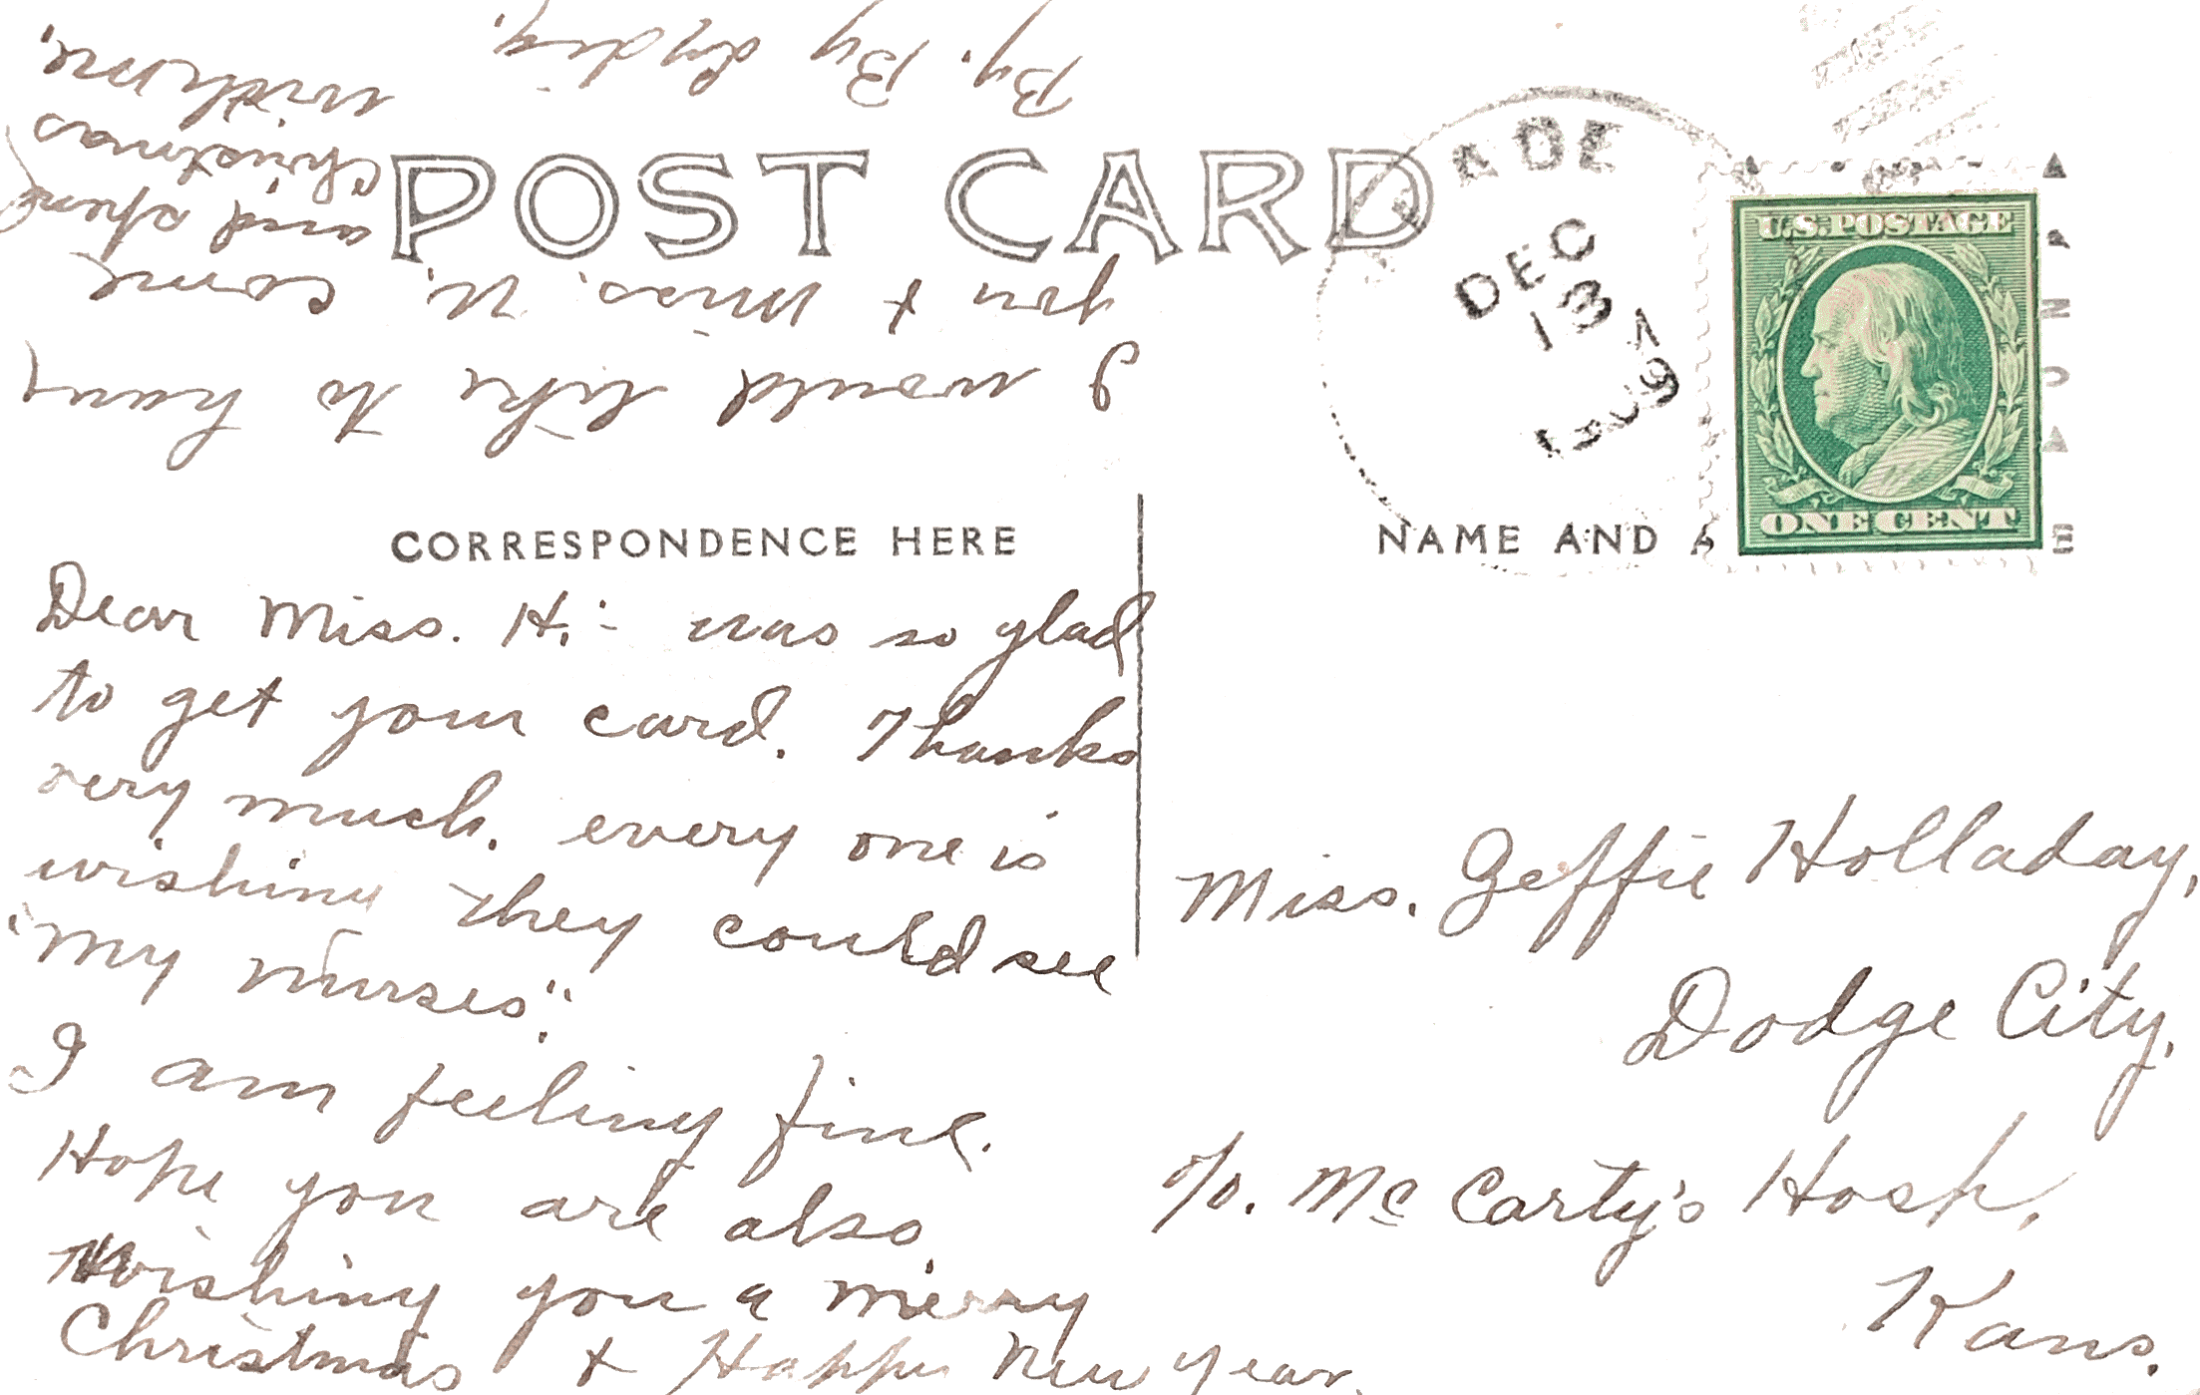 POST CARD
ADE
DEC
13
U.S. POSTAGE
ONE CENT
CORRESPONDENCE HERE
NAME AND A
E
Dear Miss. H.:- was so glad
to get your card. Thanks
very much. every one is
wishing they could see
"My nurses".
I am feeling fine.
Hope you are also.
Wishing you a merry
Christmas & Happy New Year.
I would like to have
you & Miss. U. come
and spend
Christmas
with me.
By. By Lydia.
Miss. Geffie Holladay,
Dodge City,
c/o. Mc Carty's Hosp,
Kans.